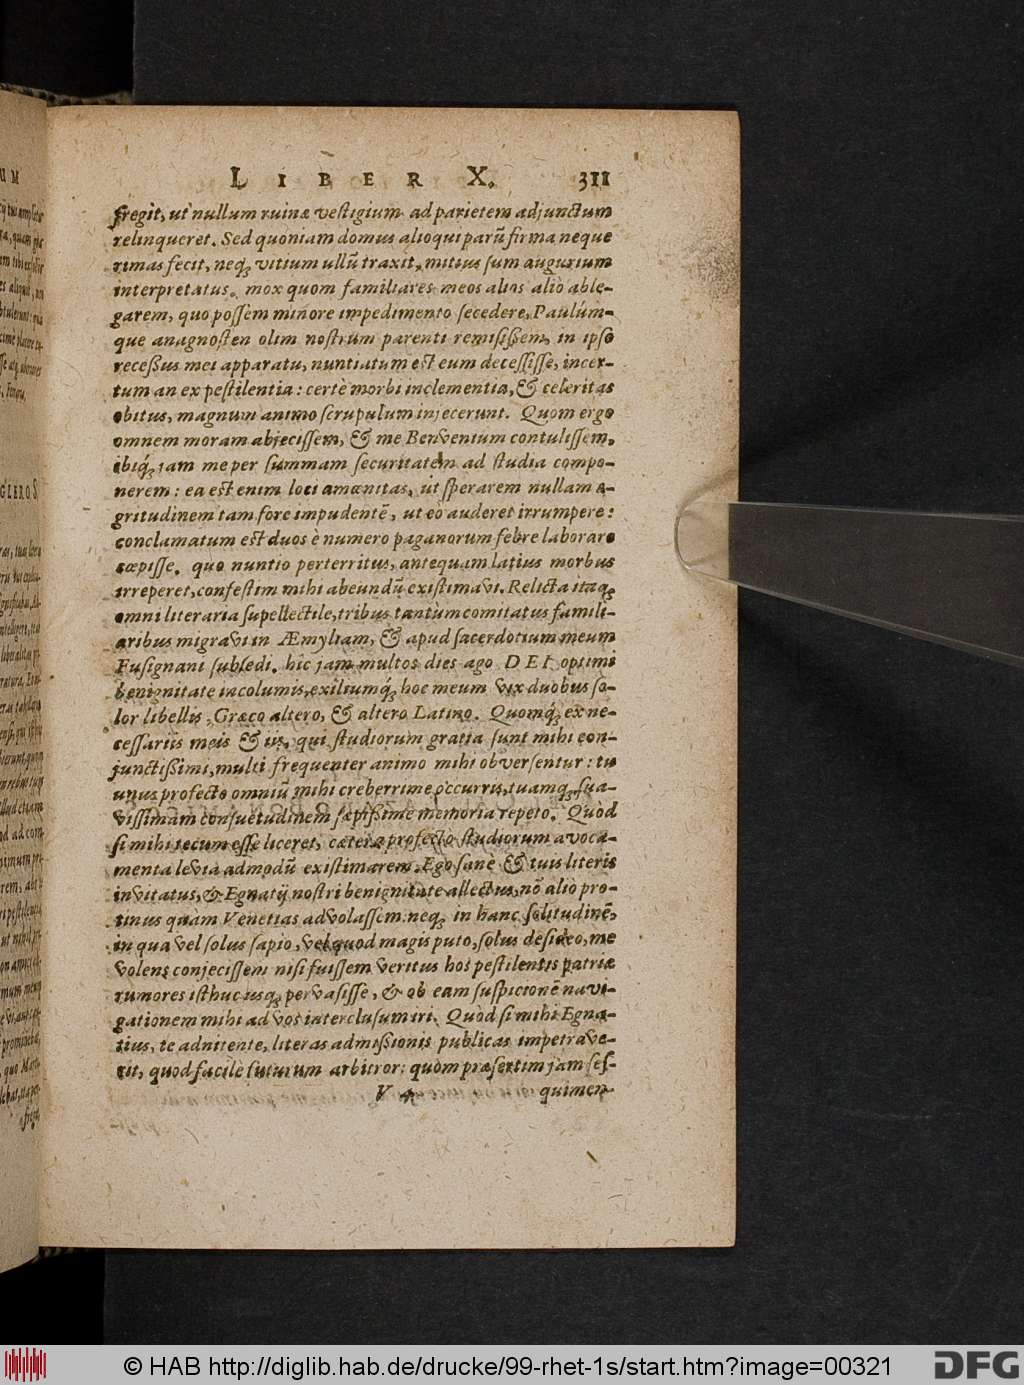 LIBER X. 311
fregit, ut nullum ruinæ vestigium ad parietem adjunctum
relinqueret. Sed quoniam domus alioqui parũ firma neque
rimas fecit, neq; vitium ullũ traxit, mitius sum augurium
interpretatus. mox quom familiares meos alios aliò able-
garem, quo possem minore impedimento secedere, Paulúm-
que anagnosten olim nostrum parenti remisissem, in ipso
recessus mei apparatu, nuntiatum est eum decessisse, incer-
tum an ex pestilentia: certè morbi inclementia, & celeritas
obitus, magnum animo scrupulum injecerunt. Quom ergo
omnem moram abjecissem, & me Benventum contulissem,
ibiq́; jam me per summam securitatem ad studia compo-
nerem: ea est enim loci amœnitas, ut sperarem nullam æ-
gritudinem tam fore impudentẽ, ut eò auderet irrumpere:
conclamatum est duos è numero paganorum febre laborare
cœpisse. quo nuntio perterritus, antequam latius morbus
irreperet, confestim mihi abeundũ existimavi. Relicta itaq;
omni literaria supellectile, tribus tantùm comitatus famili-
aribus migravi in Æmyliam, & apud sacerdotium meum
Fusignani subsedi. hic jam multos dies ago DEI optimi
benignitate incolumis, exiliumq́; hoc meum vix duobus so-
lor libellis, Græco altero, & altero Latino. Quomq́; ex ne-
cessariis meis & iis, qui studiorum gratia sunt mihi con-
junctissimi, multi frequenter animo mihi obversentur: tu
unus profectò omniũ mihi creberrimè occurris, tuamq; sua-
vissimam consuetudinem sæpissime memoria repeto. Quòd
si mihi tecum esse liceret, cætera profectò studiorum avoca-
menta levia admodũ existimarem. Ego sanè & tuis literis
invitatus, & Egnatij nostri benignitate allectus, nõ aliò pro-
tinus quàm Venetias advolassem: neq; in hanc solitudinẽ,
in qua vel solus sapio, vel quod magis puto, solus desideo, me
volens conjecissem nisi fuissem veritus hos pestilentis patriæ
rumores isthuc usq; pervasisse, & ob eam suspicionẽ navi-
gationem mihi ad vos interclusum iri. Quòd si mihi Egna-
tius, te adnitente, literas admissionis publicas impetrave-
rit, quod facilè futurum arbitror: quòm præsertim jam ses-
V 4 quimen-
© HAB http://diglib.hab.de/drucke/99-rhet-1s/start.htm?image=00321 DFG